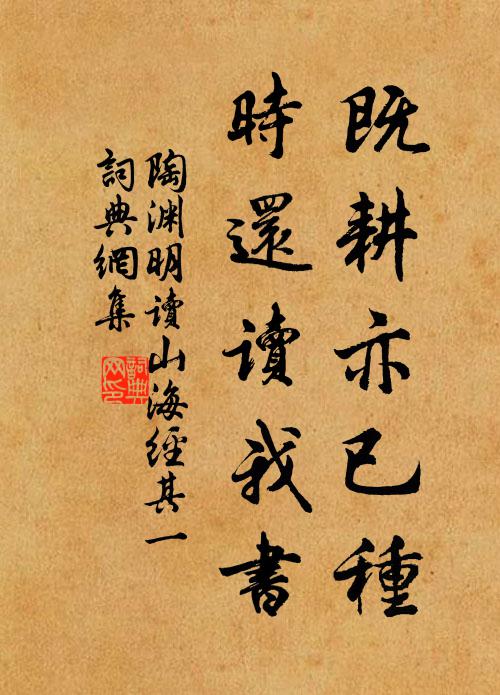 既耕亦已種
時還讀我書
陶淵明讀山海經其一
詞典網集
詞典
网印